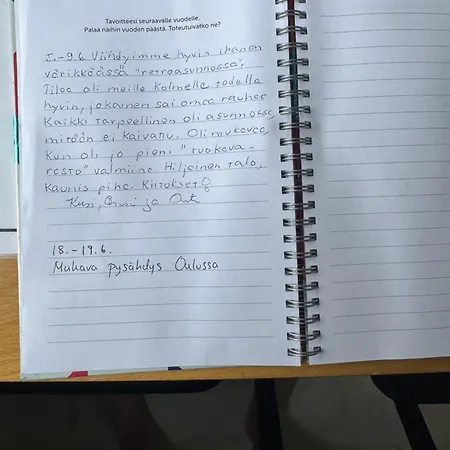 Tavoitteesi seuraavalle vuodelle.
Palaa näihin vuoden päästä. Toteutuivatko ne?
5.-9.6. Viihdyimme hyvin ihanan
värikkäässä "retroasunnossa".
Tilaa oli meille kolmelle todella
hyvin, jokainen sai omaa rauhaa.
Kaikki tarpeellinen oli asunnossa,
mitään ei kaivattu. Oli mukavaa,
kun oli jo pieni "ruokava-
rasto" valmiina. Hiljainen talo,
kaunis piha. Kiitokset!
ja
18.-19.6.
Mukava pysähdys Oulussa